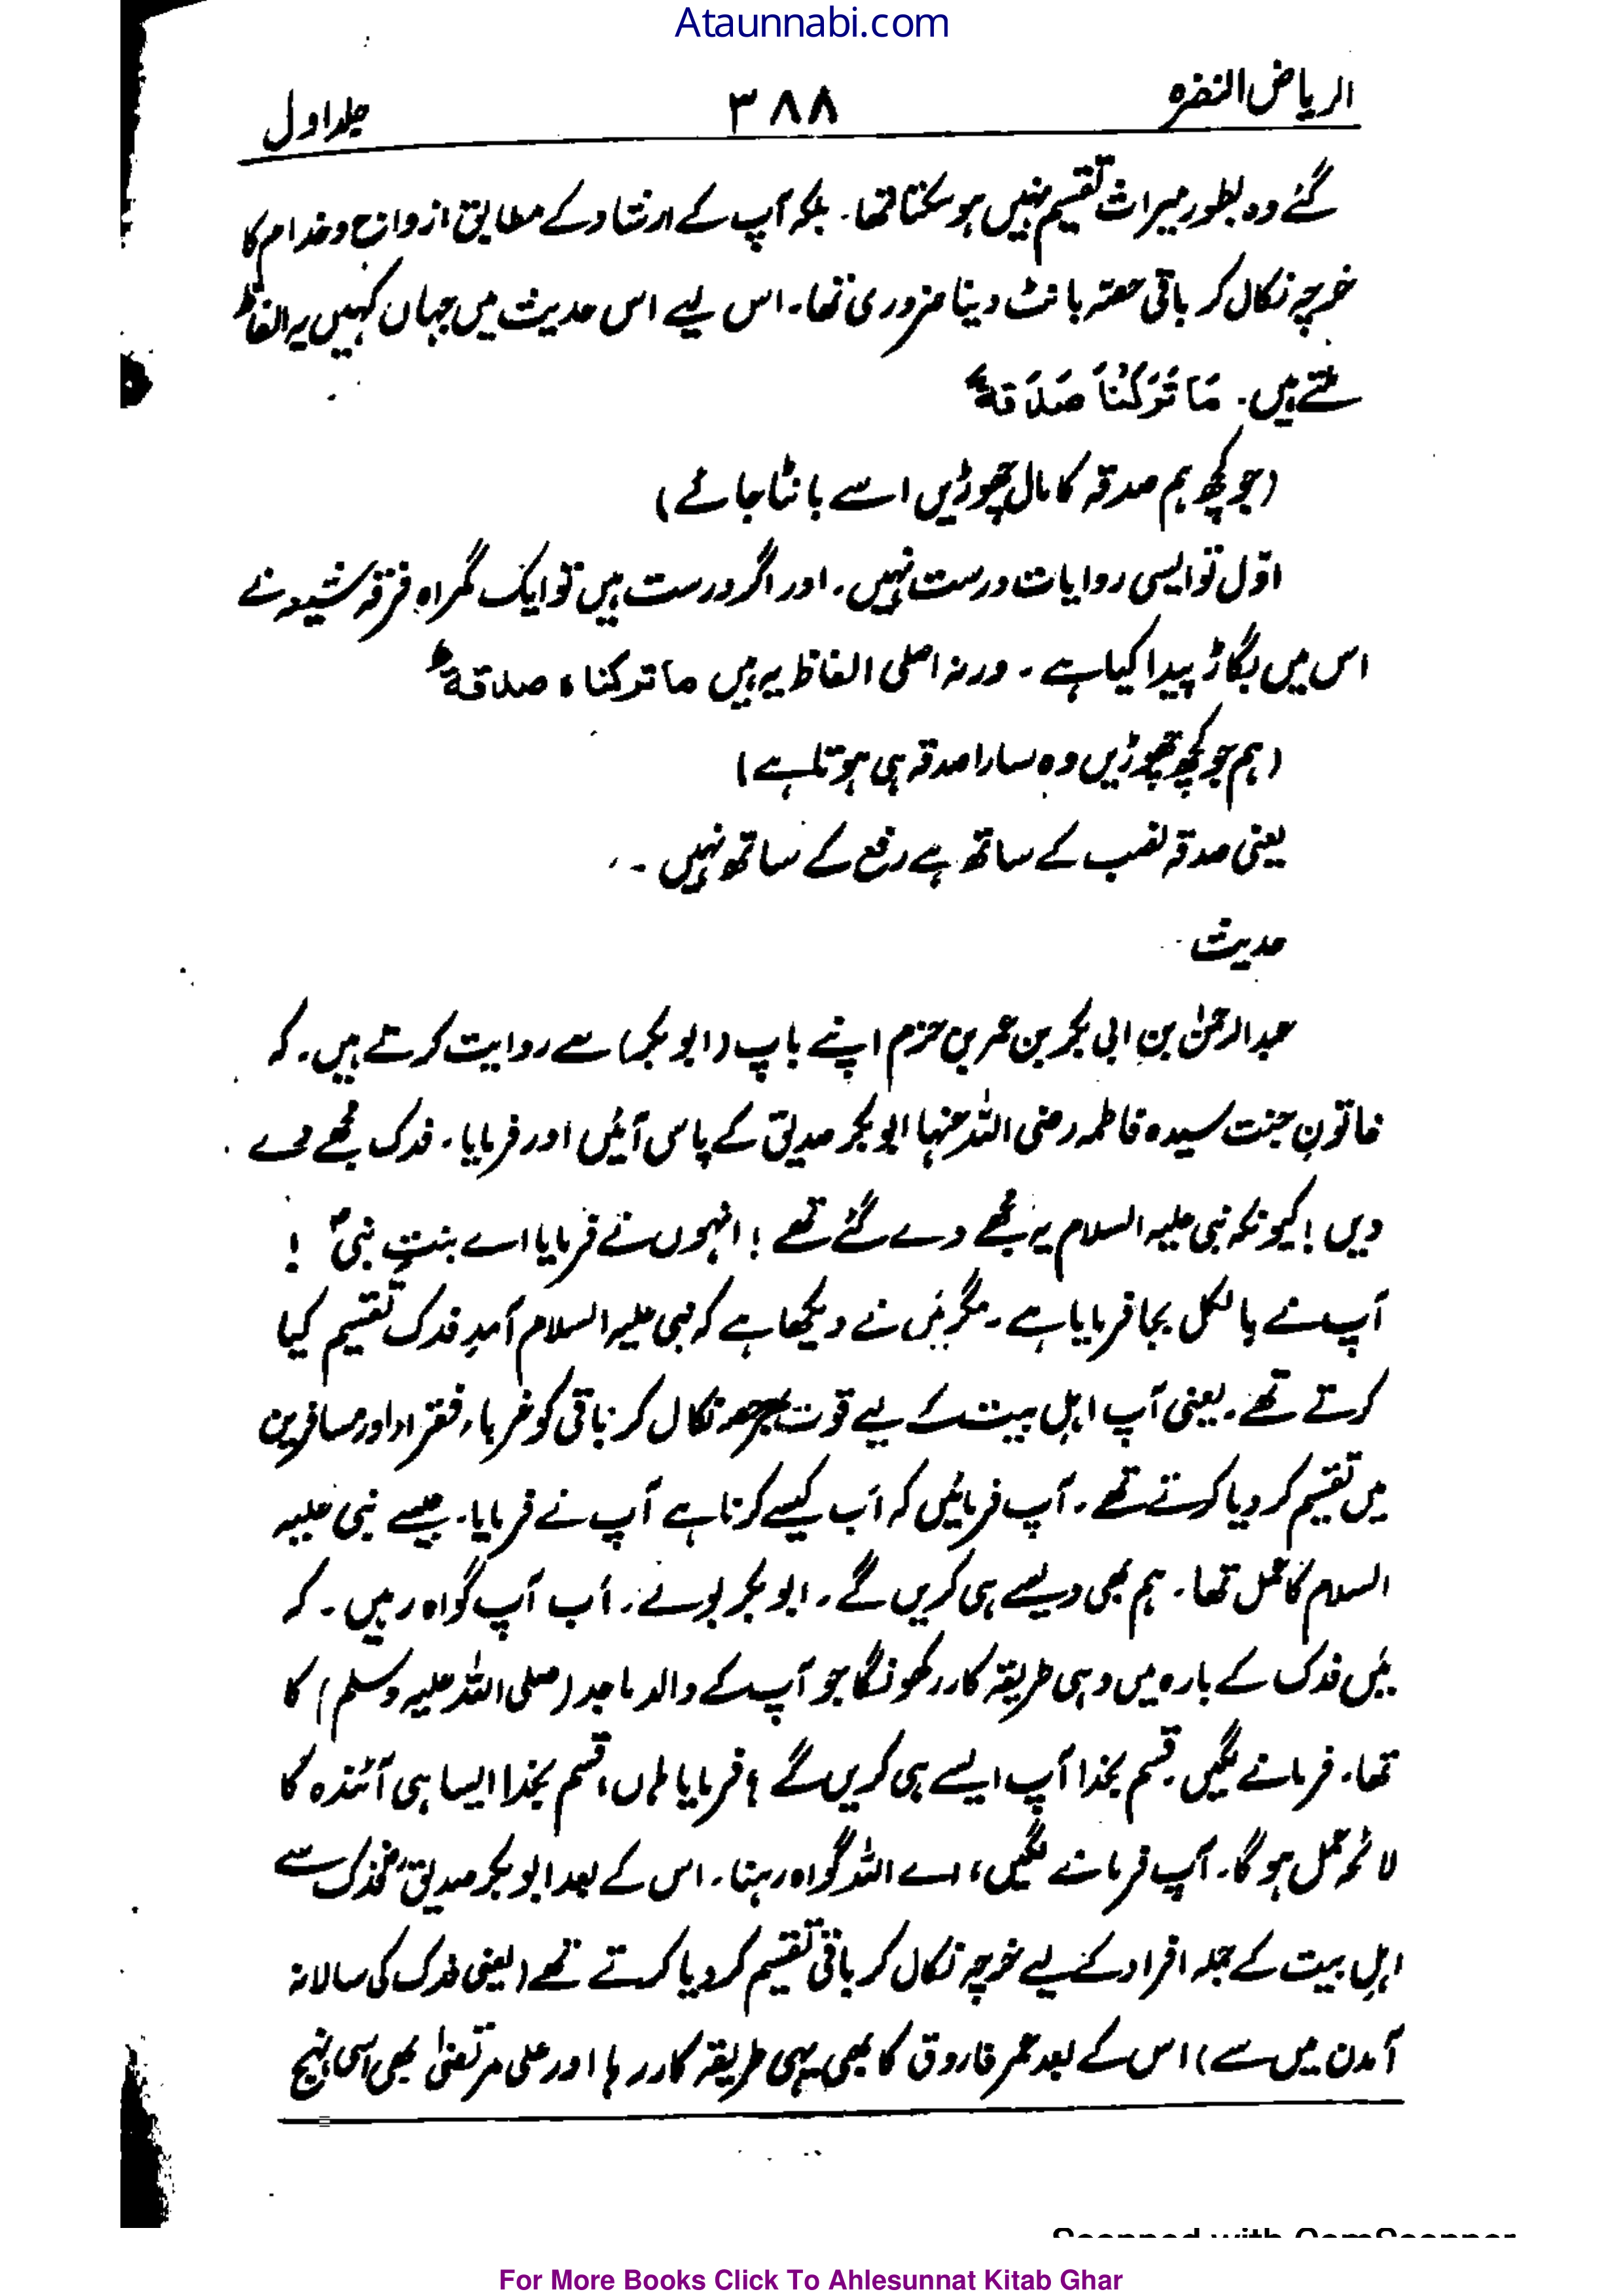 Ataunnabi.com
الریاض النضرہ ۳۸۸ جلد اول
گئے وہ بطور میراث تقسیم نہیں ہو سکتا تھا۔ بلکہ آپ کے ارشاد کے مطابق ازواج و خدام کا
خرچہ نکال کر باقی حصّہ بانٹ دینا ضروری تھا۔ اس لیے اس حدیث میں جہاں کہیں یہ الفاظ
ملتے ہیں۔ مَا تَرَکْنَا صَدَقَةً
(جو کچھ ہم صدقہ کا مال چھوڑیں اسے بانٹا جائے)
اوّل تو ایسی روایات درست نہیں۔ اور اگر درست ہیں تو ایک گمراہ فرقہ شیعہ نے
اس میں بگاڑ پیدا کیا ہے۔ ورنہ اصلی الفاظ یہ ہیں ما ترکناہ صدقة
(ہم جو کچھ چھوڑیں وہ سارا صدقہ ہی ہوتا ہے)
یعنی صدقہ نصب کے ساتھ ہے رفع کے ساتھ نہیں۔
حدیث
عبدالرحمٰن بن ابی بکر بن عمر بن حزم اپنے باپ (ابو بکر) سے روایت کرتے ہیں۔ کہ
خاتونِ جنت سیدہ فاطمہ رضی اللہ عنہا ابو بکر صدیق کے پاس آئیں اور فرمایا۔ فدک مجھے دے
دیں! کیونکہ نبی علیہ السلام یہ مجھے دے گئے تھے! انہوں نے فرمایا اے بنتِ نبیؐ!
آپ نے بالکل بجا فرمایا ہے۔ مگر میَں نے دیکھا ہے کہ نبی علیہ السلام آمدِ فدک تقسیم کیا
کرتے تھے۔ یعنی آپ اہل بیت کے لیے قوت نکال کر باقی کو غرباء، فقراء اور مسافرین
میں تقسیم کر دیا کرتے تھے۔ آپ فرمائیں کہ اَب کیسے کرنا ہے آپ نے فرمایا۔ جیسے نبی علیہ
السلام کا عمل تھا۔ ہم بھی ویسے ہی کریں گے۔ ابو بکر بولے۔ اَب آپ گواہ رہیں۔ کہ
میَں فدک کے بارہ میں وہی طریقہ کار رکھونگا جو آپ کے والد ماجد (صلی اللہ علیہ وسلم) کا
تھا۔ فرمانے لگیں۔ قسم بخدا آپ ایسے ہی کریں گے؟ فرمایا ہاں، قسم بخدا ایسا ہی آئندہ کا
لائحہ عمل ہو گا۔ آپ فرمانے لگیں، اے اللہ گواہ رہنا۔ اس کے بعد ابو بکر صدیقؓ فدک سے
اہلِ بیت کے جملہ افراد کے لیے خرچہ نکال کر باقی تقسیم کر دیا کرتے تھے (یعنی فدک کی سالانہ
آمدن میں سے) اس کے بعد عمر فاروق کا بھی یہی طریقہ کار رہا اور علی مرتضیٰ بھی اسی نہج
Scanned with CamScanner
For More Books Click To Ahlesunnat Kitab Ghar